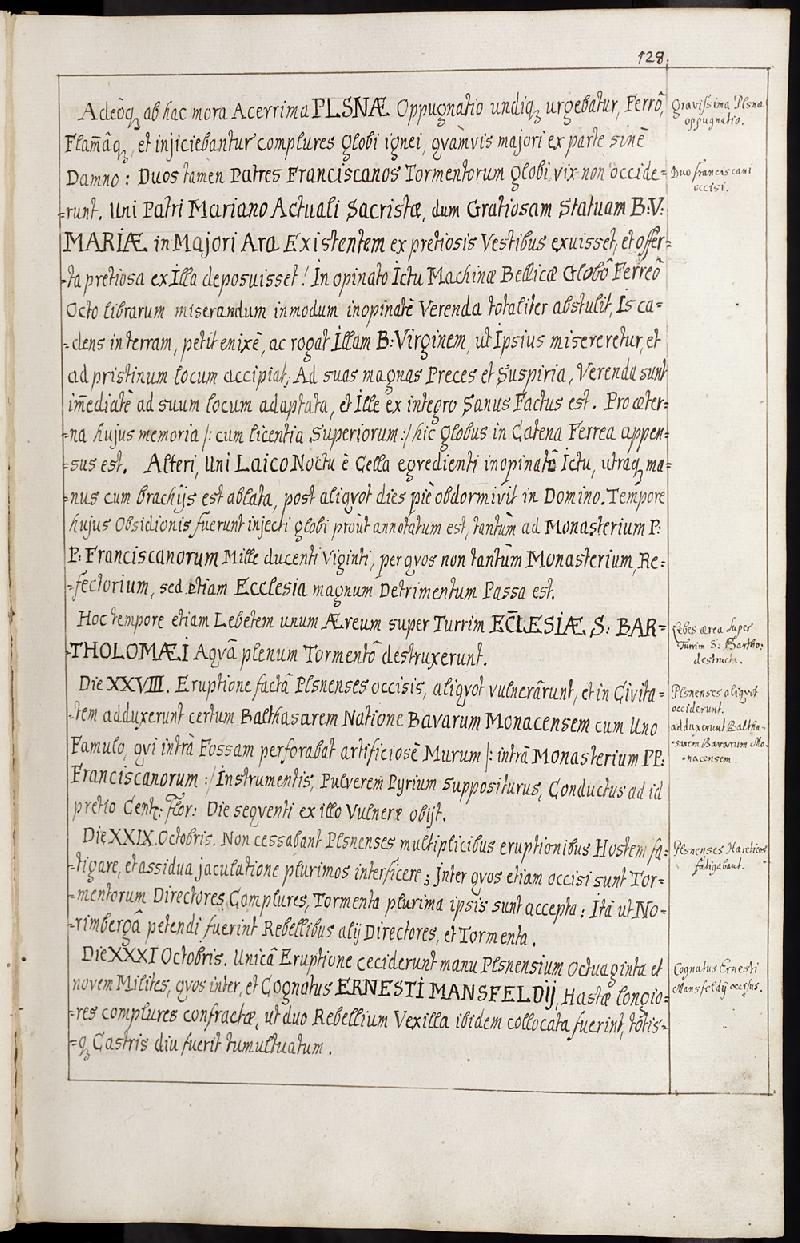 128.
Adeóq₃ ab hac mora Acerrima PLSNÆ Oppugnatio undiq₃ urgebatur, Ferrô,
Flam̃âq₃, et injiciebantur complures globi ignei, qvamvis majori ex parte sinè
Damno: Duos tamen Patres Franciscanos Tormentorum globi vix non occide=
=runt. Uni Patri Mariano Actuali Sacristæ, dum Gratiosam Statuam B:V:
MARIÆ in Majori Ara Existentem ex pretiosis Vestibus exuisset, et offer=
=ta pretiosa ex Illa deposuisset! Inopinato Ictu Machinæ Bellicæ Globô Ferreô
Octo librarum miserandum inmodum inopinatè Verenda totaliter abstulit, Is ca=
=dens in terram, petit enixè, ac rogat Illam B: Virginem, ut Ipsius misereretur, et
ad pristinum locum accipiat, Ad suas magnas Preces et Suspiria, Verenda sunt
im̃ediatè ad suum locum adaptata, et Ille ex integro Sanus Factus est. Pro æter=
=na hujus memoria /: cum licentia Superiorum :/ hic globus in Catena Ferrea appen=
=sus est. Alteri, Uni Laico Noctu è Cella egredienti inopinatô Ictu, utraq₃ ma=
=nus cum brachijs est ablata, post aliqvot dies piè obdormivit in Domino. Tempore
hujus Obsidionis fuerunt injecti globi prout annotatum est, tantùm ad Monasterium P:
P: Franciscanorum Mille ducenti Viginti, per qvos non tantum Monasterium, Re=
=fectorium, sed etiam Ecclesia magnum Detrimentum Passa est.
Hoc tempore etiam Lebetem unum Æreum super Turrim ECC̃LESIÆ S: BAR=
=THOLOMÆI Aqvâ plenum Tormentô destruxerunt.
Die XXVIII. Eruptione factâ Plsnenses occisis, aliqvot vulnerârunt, et in Civita=
=tem adduxerunt certum Balthasarem Natione Bavarum Monacensem cum Uno
Famulo, qvi intrà Fossam perforabat artificiosè Murum /: intrà Monasterium PP:
Franciscanorum :/ Instrumentis, Pulverem Pyrium suppositurus, Conductus ad id
pretio Cent: Flor: Die seqventi ex illo Vulnere obijt.
Die XXIX. Octobris. Non cessabant Plsnenses multiplicibus eruptionibus Hostem fa=
=tigare, et assidua jaculatione plurimos interficere; Inter qvos etiam occisi sunt Tor=
=mentorum Directores Complures, Tormenta plurima ipsis sunt accepta: Ità ut No=
=rimbergâ petendi fuerint Rebellibus alij Directores, et Tormenta.
Die XXXI Octobris. Unicâ Eruptione ceciderunt manu Plsnensium Octuaginta et
novem Milites, qvos inter, et Cognatus ERNESTI MANSFELDIJ, Hastæ longio=
=res complures confractæ, ut duo Rebellium Vexilla ibidem collocata fuerint, totis=
=q₃ Castris diu fuerit tumultuatum.
Gravissima Plsnæ
oppugnatio.
Duo franciscani
occisi.
Lebes ærea super
Turrim S: Bartho:
destructa.
Plsnenses aliqvot
occiderunt.
adduxerunt Baltha=
=sarem Bavarum Mo=
=nacensem
Plsnenses Hosticos
fatigabant.
Cognatus Ernesti
Mansfeldij occisus.